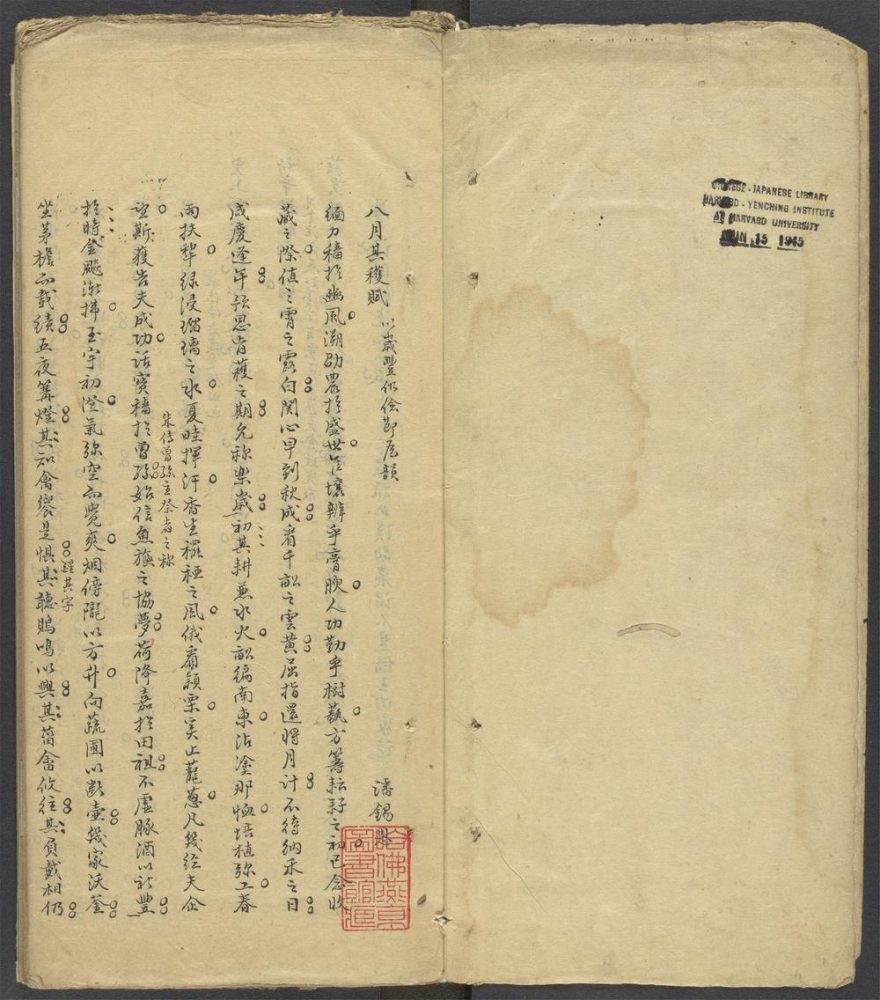 八月其穫賦 以歲豐仍儉節為韻 潘錫恩
緬力穡於豳風溯劭農於盛世年壤辨乎膏腴人功勤乎樹蓺方籌耘耔之初已念收
藏之際值之宵之露白関心早到秋成看千畝之雲黄屈指還將月计不待納禾之日
咸慶逢年預思省穫之期允称樂歲初其耕兼水火畝徧南東沾塗那恤培植弥工春
雨扶犂绿浸瑠璃之水夏畦揮汗香生䆉稏之風俄看穎栗实止蘢葱凡幾经夫企
望斯穫告夫成功话寳穡於曾孫始信魚旐之協夢荷降嘉於田祖不虛豚酒以祈豐
朱傳曽孫主祭者之称
於時金飈漸拂玉宇初澄氣弥空而覺爽烟傍隴以方升向蔬圃以断壷幾家沃釜
坐茅檐而載績五夜篝燈其知禽饗是惧其聴鵙鳴以興其菑畬攸往其負戴相仍
醒其字
CHINESE-JAPANESE LIBRARY
HARVARD-YENCHING INSTITUTE
AT HARVARD UNIVERSITY
JUN 15 1945
哈佛燕京
圖書館